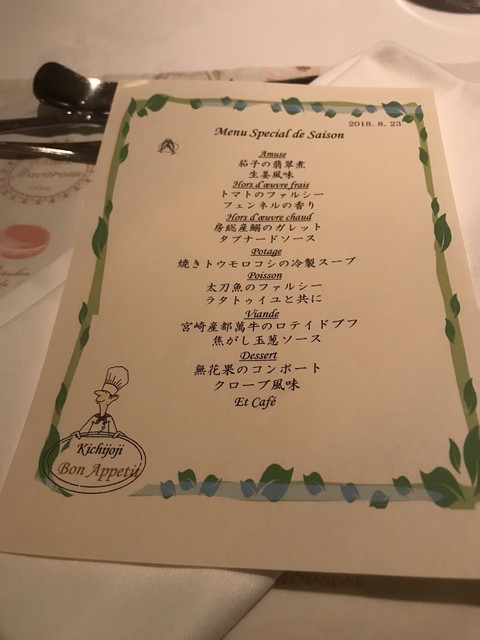 2018. 8. 23
Menu Special de Saison
Amuse
茄子の翡翠煮
生姜風味
Hors d'œuvre frais
トマトのファルシー
フェンネルの香り
Hors d'œuvre chaud
房総産鰯のガレット
タプナードソース
Potage
焼きトウモロコシの冷製スープ
Poisson
太刀魚のファルシー
ラタトゥイユと共に
Viande
宮崎産都萬牛のロテイドブフ
焦がし玉葱ソース
Dessert
無花果のコンポート
クローブ風味
Et Café
Kichijoji
Bon Appetit
Macarons